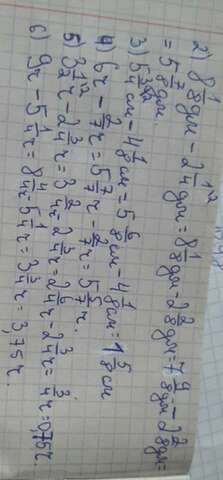 2) 8 1/8 дм − 2 1/4 дм = 8 1/8 дм − 2 2/8 дм = 7 9/8 дм − 2 2/8 дм =
= 5 7/8 дм.
3) 5 3/4 см − 4 1/8 см = 5 6/8 см − 4 1/8 см = 1 5/8 см
4) 6 ч − 2/7 ч = 5 7/7 ч − 2/7 ч = 5 5/7 ч.
5) 3 1/2 ч − 2 3/4 ч = 3 2/4 ч − 2 3/4 ч = 2 6/4 ч − 2 3/4 ч = 3/4 ч = 0,75 ч.
6) 9 ч − 5 1/4 ч = 8 4/4 ч − 5 1/4 ч = 3 3/4 ч = 3,75 ч.